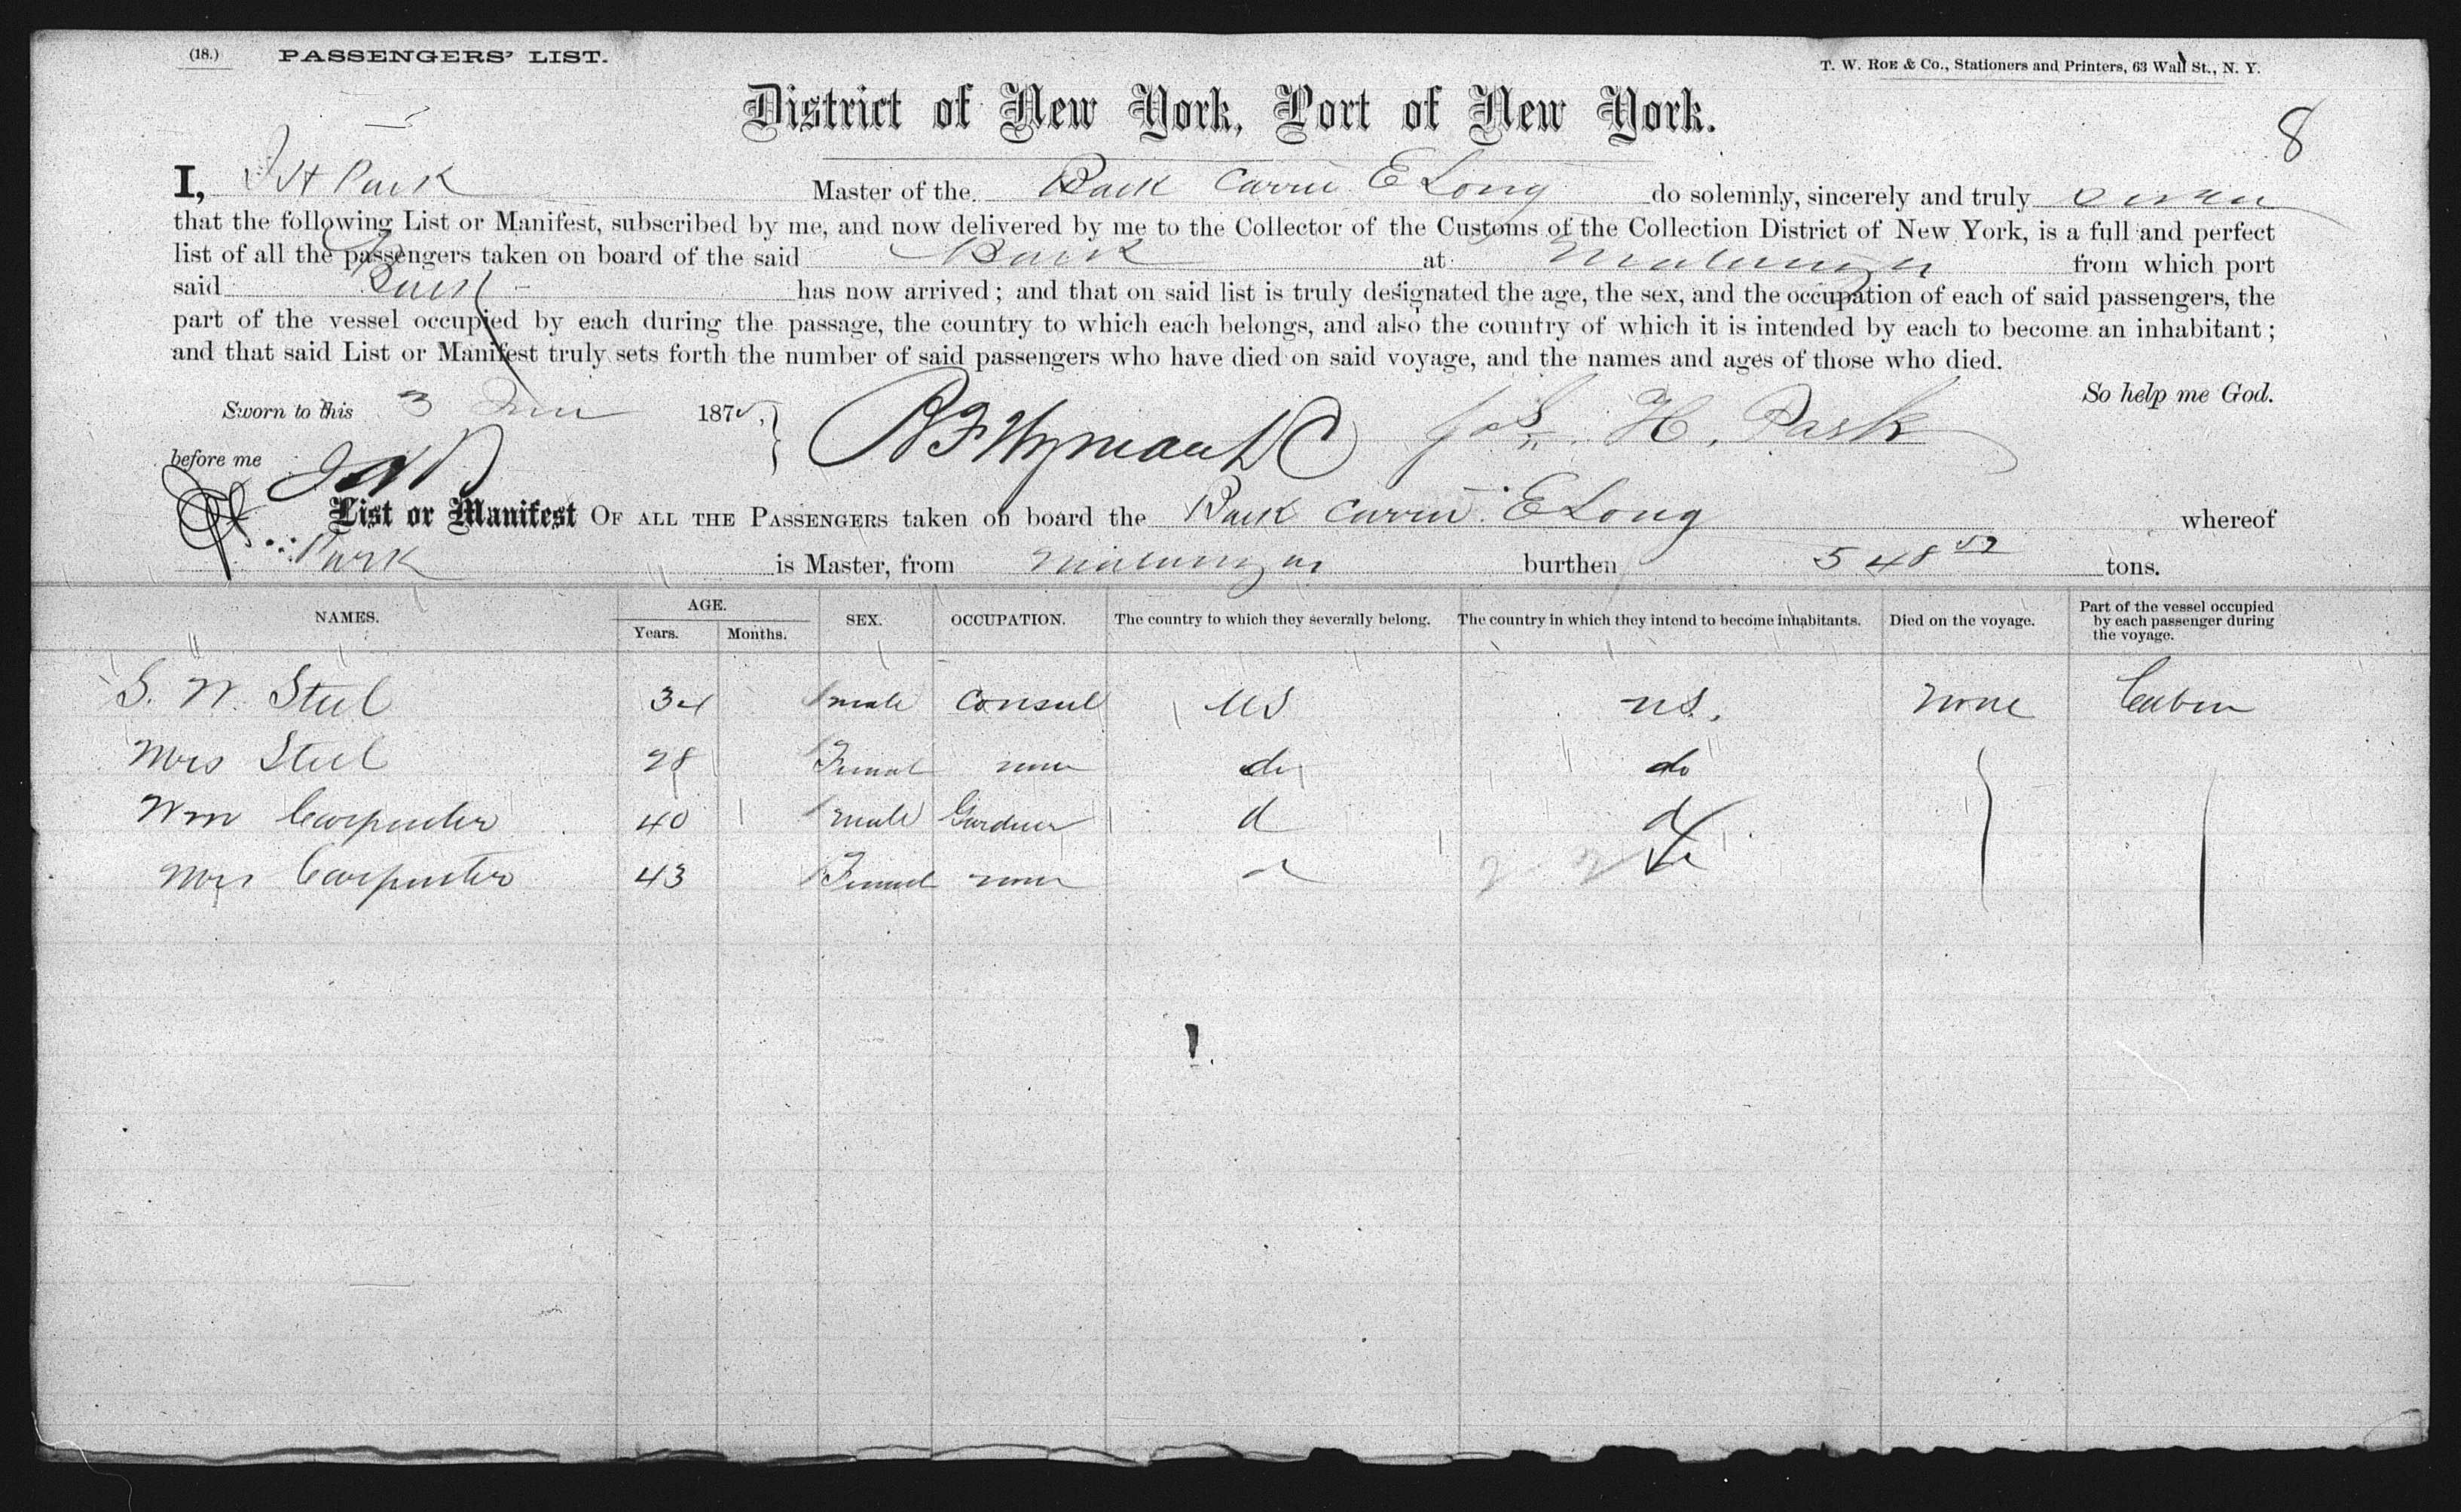 (18.) PASSENGERS' LIST.
T. W. ROE & Co., Stationers and Printers, 63 Wall St., N. Y.
District of New York, Port of New York.
8
I, J H Park Master of the Bark Carrie E Long do solemnly, sincerely and truly swear
that the following List or Manifest, subscribed by me, and now delivered by me to the Collector of the Customs of the Collection District of New York, is a full and perfect
list of all the passengers taken on board of the said Bark at Matanzas from which port
said Bark has now arrived; and that on said list is truly designated the age, the sex, and the occupation of each of said passengers, the
part of the vessel occupied by each during the passage, the country to which each belongs, and also the country of which it is intended by each to become an inhabitant;
and that said List or Manifest truly sets forth the number of said passengers who have died on said voyage, and the names and ages of those who died.
So help me God.
Sworn to this 3 187
Jos. H. Park
before me
List or Manifest OF ALL THE PASSENGERS taken on board the Bark Carrie E Long whereof
Park is Master, from Matanzas burthen 548 52 tons.
NAMES. AGE. Years. Months. SEX. OCCUPATION. The country to which they severally belong. The country in which they intend to become inhabitants. Died on the voyage. Part of the vessel occupied by each passenger during the voyage.
S. W. Steel 34 male Consul US US. None Cabin
Mrs Steel 28 Female none do do
Wm Carpenter 40 male Gardner d d
Mrs Carpenter 43 Female none